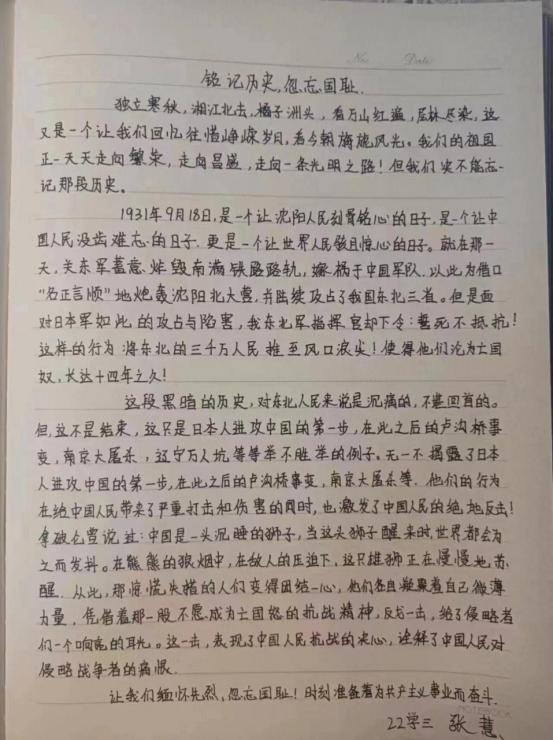 No.  Date
铭记历史,忽忘国耻.
独立寒秋,湘江北去,橘子洲头,看万山红遍,层林尽染,这
又是一个让我们回忆往惜峥嵘岁月,看今朝旖旎风光。我们的祖国
正一天天走向繁荣,走向昌盛,走向一条光明之路!但我们决不能忘
记那段历史。
1931年9月18日,是一个让沈阳人民刻骨铭心的日子,是一个让中
国人民没齿难忘的日子.更是一个让世界人民骇且惊心的日子。就在那一
天,关东军蓄意炸毁南满铁路路轨,嫁祸于中国军队.以此为借口
"名正言顺"地炮轰沈阳北大营,并陆续攻占了我国东北三省。但是面
对日本军如此的攻占与陷害,我东北军指挥官却下令:誓死不抵抗!
这样的行为将东北的三千万人民推至风口浪尖!使得他们沦为亡国
奴,长达十四年之久!
这段黑暗的历史,对东北人民来说是沉痛的,不堪回首的。
但,这不是结束,这只是日本人进攻中国的第一步,在此之后的卢沟桥事
变,南京大屠杀,辽宁万人坑等等举不胜举的例子。无一不揭露了日本
人进攻中国的第一步,在此之后的卢沟桥事变,南京大屠杀等.他们的行为
在给中国人民带来了严重打击和伤害的同时,也激发了中国人民的绝地反击!
拿破仑曾说过:中国是一头沉睡的狮子,当这头狮子醒来时,世界都会为
之而发抖。在熊熊的狼烟中,在敌人的压迫下,这只雄狮正在慢慢地苏
醒.从此,那惊慌失措的人们变得团结一心,他们各自凝聚着自己微薄
力量,凭借着那一股不愿成为亡国怒的抗战精神,反戈一击,给了侵略者
们一个响亮的耳光。这一击,表现了中国人民抗战的决心,诠解了中国人民对
侵略战争者的痛恨.
让我们缅怀先烈,忽忘国耻!时刻准备着为共产主义事业而奋斗.
NOTEBOOK
22学三 张慧